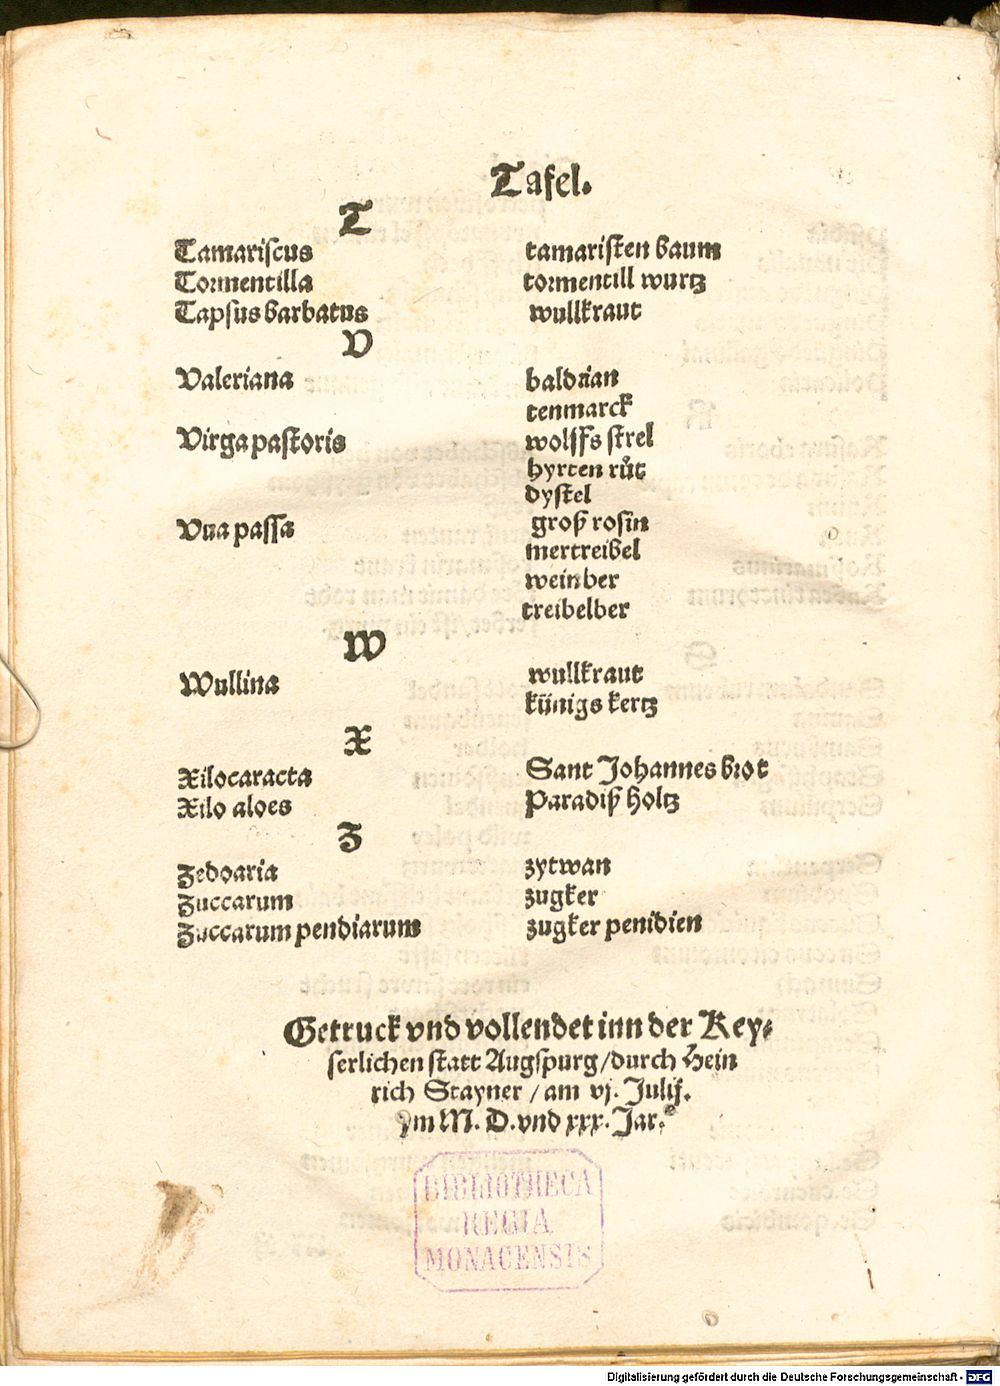 Tafel.
T
Tamariſcus tamariſten baum
Tormentilla tormentill wurtz
Tapſus barbatus wullkraut
V
Valeriana baldrian
tenmarck
Virga paſtoris wolffs ſtrel
hyrten růt
dyſtel
Vua paſſa groß roſin
mertreibel
weinber
treibelber
W
Wullina wullkraut
künigs kertz
X
Xilocaracta Sant Johannes brot
Xilo aloes Paradiß holtz
Z
Zedoaria zytwan
Zuccarum zugker
Zuccarum pendiarum zugker penidien
Getruck vnd vollendet inn der Key⸗
ſerlichen ſtatt Augſpurg/durch Hein
rich Stayner/am vj. Julij.
ym M. D. vnd xxx. Jar.
BIBLIOTHECA
REGIA
MONACENSIS
Digitalisierung gefördert durch die Deutsche Forschungsgemeinschaft - DFG